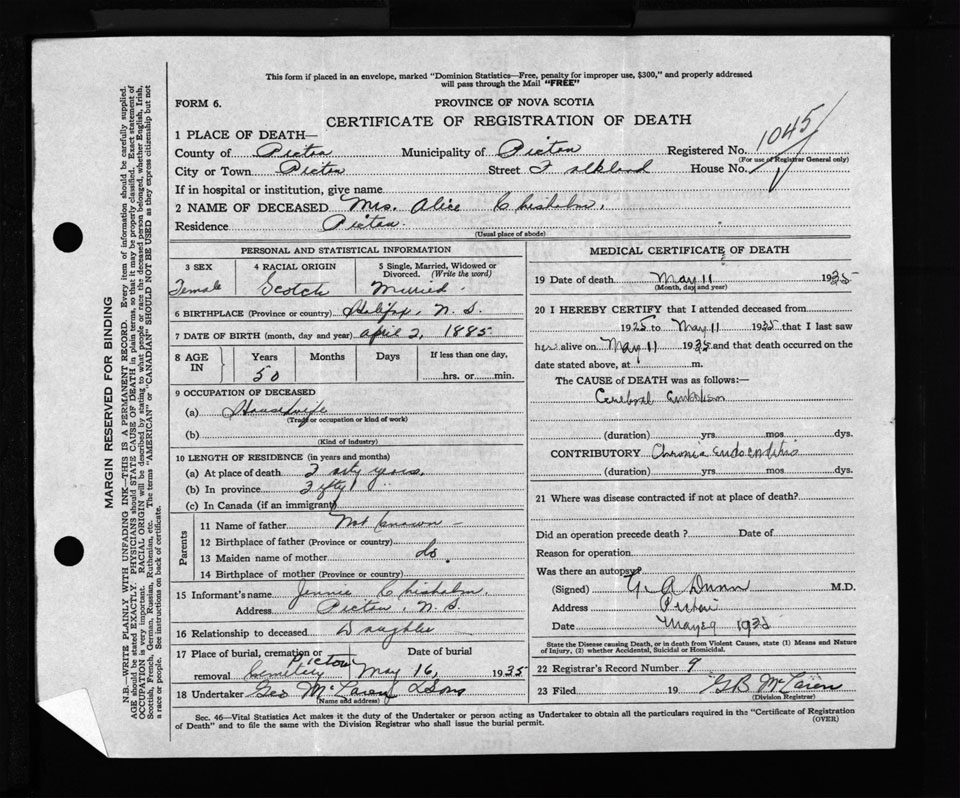 This form if placed in an envelope, marked "Dominion Statistics—Free, penalty for improper use, $300," and properly addressed
will pass through the Mail "FREE"
FORM 6.
PROVINCE OF NOVA SCOTIA
CERTIFICATE OF REGISTRATION OF DEATH
1045
1 PLACE OF DEATH—
County of Pictou Municipality of Pictou Registered No.
(For use of Registrar General only)
City or Town Pictou Street Falkland House No.
If in hospital or institution, give name
2 NAME OF DECEASED Mrs. Alice Chisholm.
Residence Pictou
(Usual place of abode)
PERSONAL AND STATISTICAL INFORMATION
3 SEX 4 RACIAL ORIGIN 5 Single, Married, Widowed or Divorced. (Write the word)
Female Scotch Married.
6 BIRTHPLACE (Province or country) Halifax, N. S.
7 DATE OF BIRTH (month, day and year) April 2, 1885
8 AGE IN Years Months Days If less than one day,
50 hrs. or min.
9 OCCUPATION OF DECEASED
(a) Housewife
(Trade or occupation or kind of work)
(b)
(Kind of industry)
10 LENGTH OF RESIDENCE (in years and months)
(a) At place of death years.
(b) In province Fifty "
(c) In Canada (if an immigrant)
Parents
11 Name of father Not known
12 Birthplace of father (Province or country)
13 Maiden name of mother do.
14 Birthplace of mother (Province or country)
15 Informant's name Jennie Chisholm.
Address Pictou, N. S.
16 Relationship to deceased Daughter
17 Place of burial, cremation or removal Pictou Cemetery Date of burial May 16, 1935
18 Undertaker Geo McLaren & Sons
(Name and address)
MEDICAL CERTIFICATE OF DEATH
19 Date of death May 11 1935
(Month, day and year)
20 I HEREBY CERTIFY that I attended deceased from
1925 to May 11 1935 that I last saw
her alive on May 11 1935 and that death occurred on the
date stated above, at m.
The CAUSE of DEATH was as follows:—
Cerebral Embolism
(duration) yrs. mos. dys.
CONTRIBUTORY Chronic Endocarditis
(duration) yrs. mos. dys.
21 Where was disease contracted if not at place of death?
Did an operation precede death? Date of
Reason for operation
Was there an autopsy?
(Signed) G. A Dunn M.D.
Address Pictou
Date May 29 1935
State the Disease causing Death, or in death from Violent Causes, state (1) Means and Nature
of Injury, (2) whether Accidental, Suicidal or Homicidal.
22 Registrar's Record Number 9
23 Filed 19 GB McLaren
(Division Registrar)
Sec. 46—Vital Statistics Act makes it the duty of the Undertaker or person acting as Undertaker to obtain all the particulars required in the "Certificate of Registration
of Death" and to file the same with the Division Registrar who shall issue the burial permit.
(OVER)
MARGIN RESERVED FOR BINDING
N.B.—WRITE PLAINLY WITH UNFADING INK—THIS IS A PERMANENT RECORD. Every item of information should be carefully supplied.
AGE should be stated EXACTLY. PHYSICIANS should STATE CAUSE OF DEATH in plain terms, so that it may be properly classified. Exact statement of
OCCUPATION is very important. RACIAL ORIGIN will be described by stating to what people or race the deceased person belonged, whether English, Irish,
Scottish, French, German, Russian, Ruthenian, etc. The terms "AMERICAN" or "CANADIAN" SHOULD NOT BE USED as they express citizenship but not
a race or people. See instructions on back of certificate.